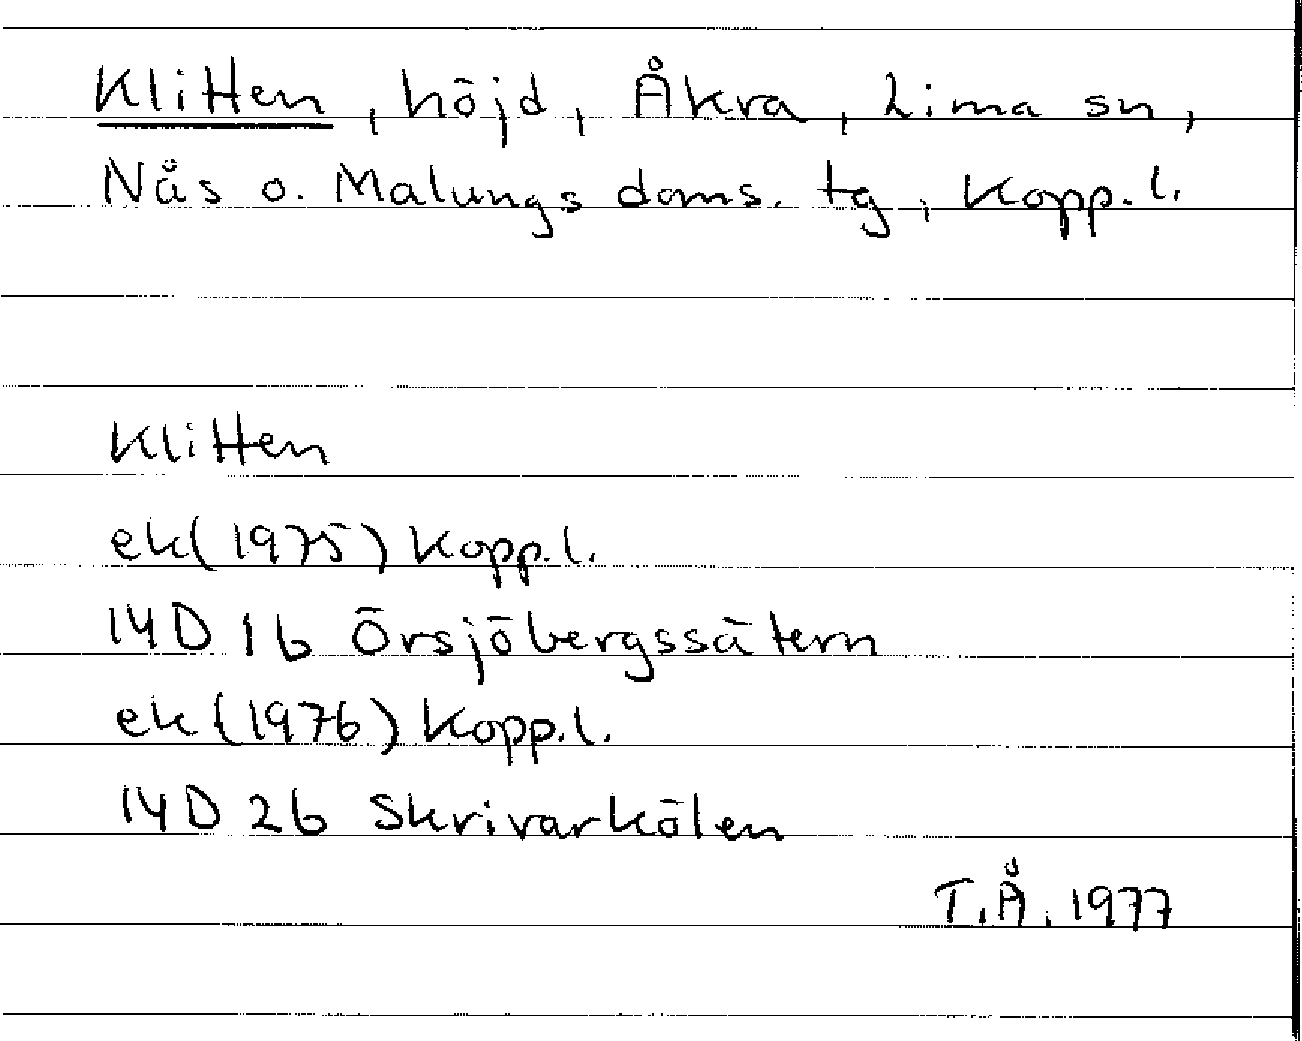 Klitten, höjd, Åkra, Lima sn,
Nås o. Malungs doms. tg, Kopp. l.
Klitten
ek (1975) Kopp. l.
14D 1b Örsjöbergssätern
ek (1976) Kopp. l.
14D 2b Skrivarkölen
T.Å. 1977